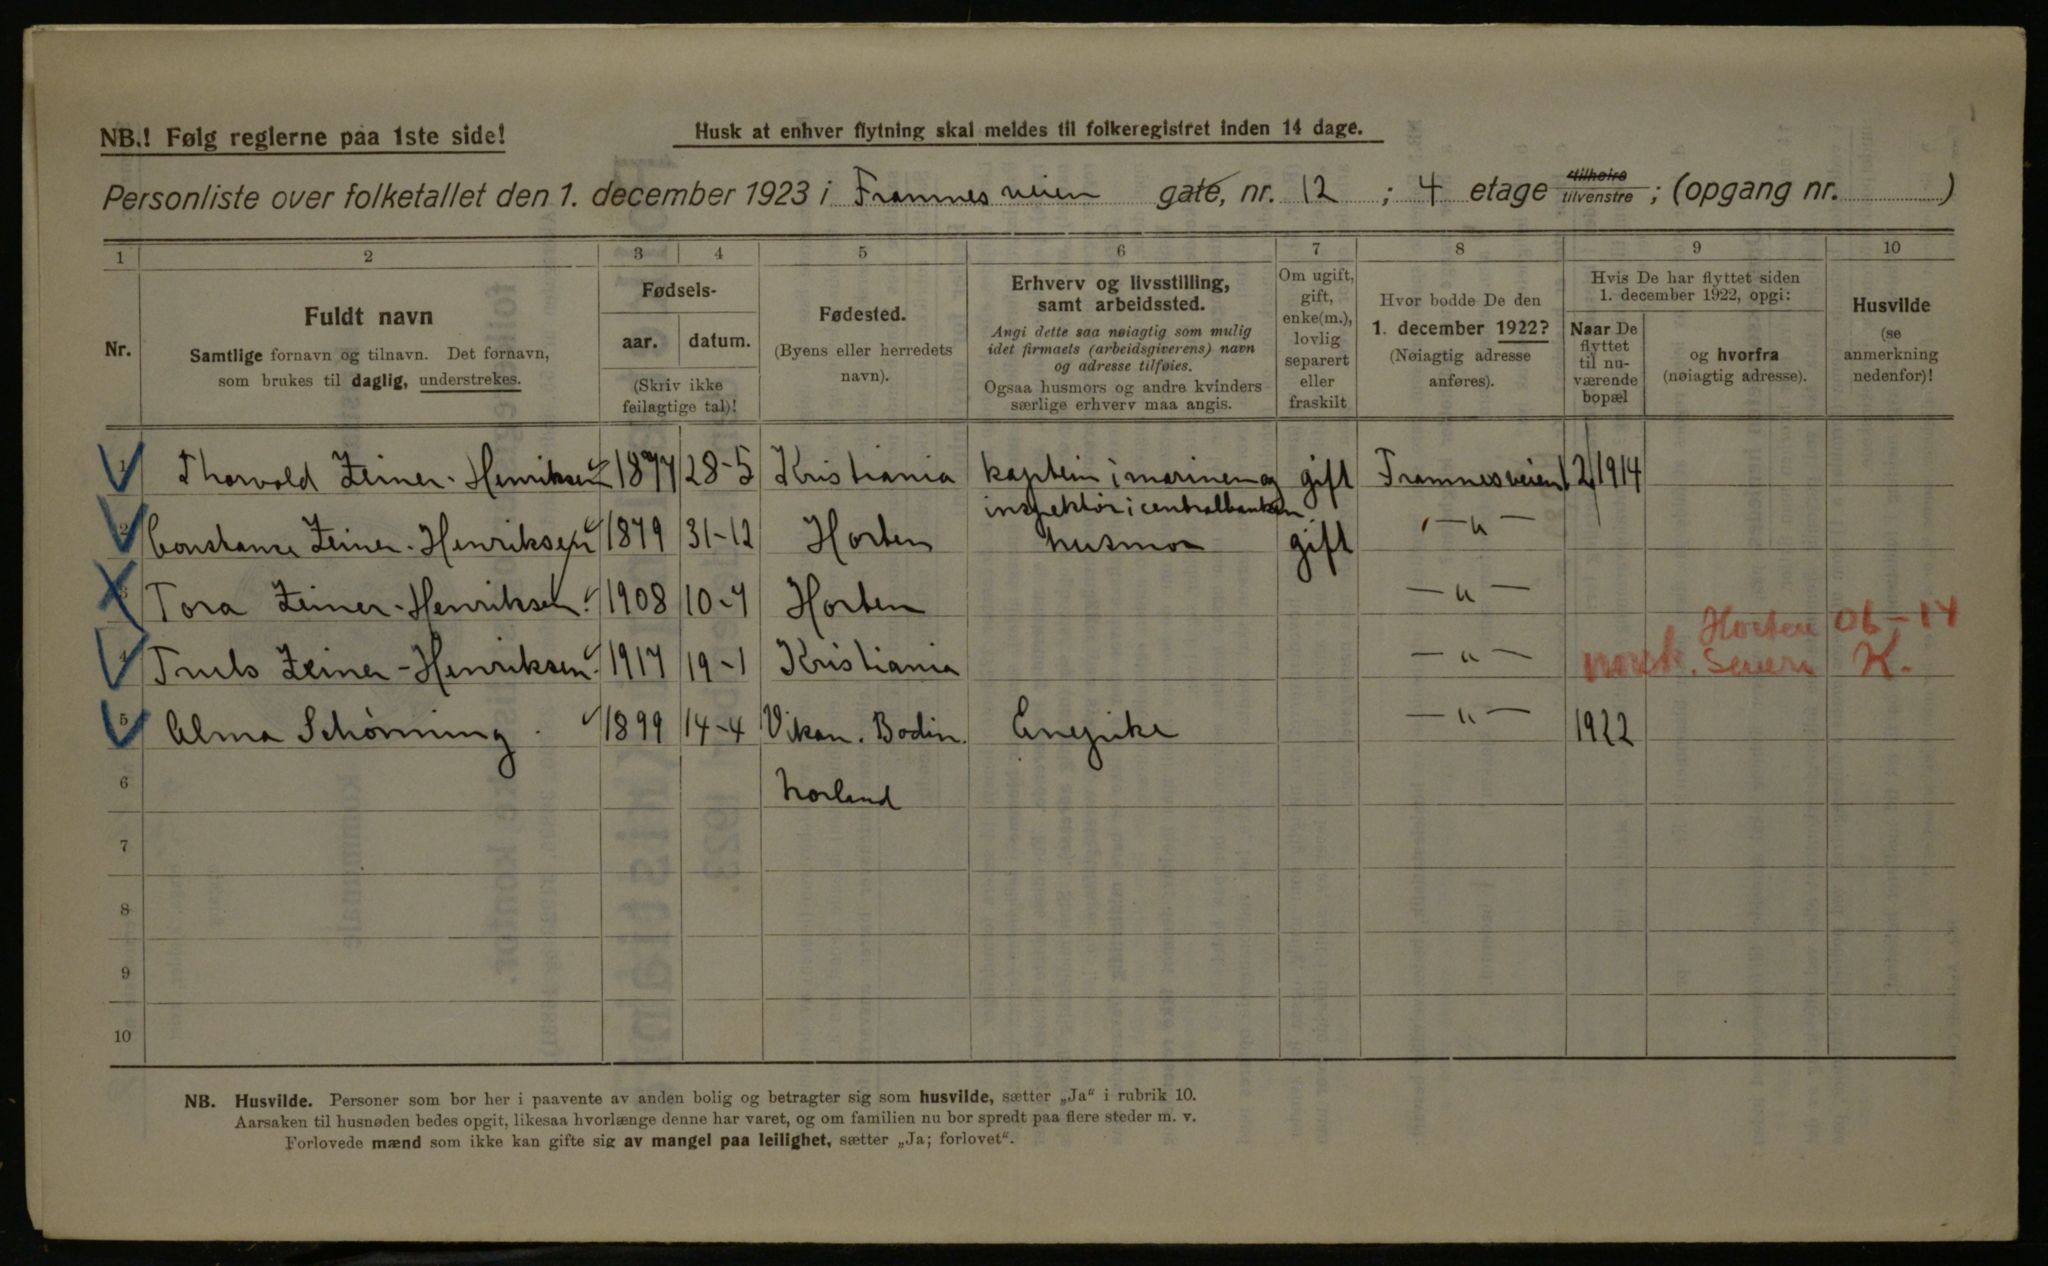 NB.! Følg reglerne paa 1ste side!
Husk at enhver flytning skal meldes til folkeregistret inden 14 dage.
Personliste over folketallet den 1. december 1923 i Framnesveien gate, nr. 12 ; 4 etage tilhøire tilvenstre ; (opgang nr. )
1 2 3 4 5 6 7 8 9 10
Nr.
Fuldt navn
Samtlige fornavn og tilnavn. Det fornavn,
som brukes til daglig, understrekes.
Fødsels-
aar. datum.
(Skriv ikke
feilagtige tal)!
Fødested.
(Byens eller herredets
navn).
Erhverv og livsstilling,
samt arbeidssted.
Angi dette saa nøiagtig som mulig
idet firmaets (arbeidsgiverens) navn
og adresse tilføies.
Ogsaa husmors og andre kvinders
særlige erhverv maa angis.
Om ugift,
gift,
enke(m.),
lovlig
separert
eller
fraskilt
Hvor bodde De den
1. december 1922?
(Nøiagtig adresse
anføres).
Hvis De har flyttet siden
1. december 1922, opgi:
Naar De
flyttet
til nu-
værende
bopæl
og hvorfra
(nøiagtig adresse).
Husvilde
(se
anmerkning
nedenfor)!
1 Thorvald Zeiner-Henriksen 1877 28-5 Kristiania kaptein i marinen og gift Framnesveien 12 1914
inspektør i centralbanken
2 Constance Zeiner-Henriksen 1879 31-12 Horten husmor gift —„—
3 Tora Zeiner-Henriksen 1908 10-7 Horten —„—
Horten 06-14
4 Truls Zeiner-Henriksen 1917 19-1 Kristiania —„— norsk. Senere K.
5 Alma Schønning 1899 14-4 Vikan. Bodin. Enepike —„— 1922
6 Norland
7
8
9
10
NB. Husvilde. Personer som bor her i paavente av anden bolig og betragter sig som husvilde, sætter „Ja“ i rubrik 10.
Aarsaken til husnøden bedes opgit, likesaa hvorlænge denne har varet, og om familien nu bor spredt paa flere steder m. v.
Forlovede mænd som ikke kan gifte sig av mangel paa leilighet, sætter „Ja; forlovet“.